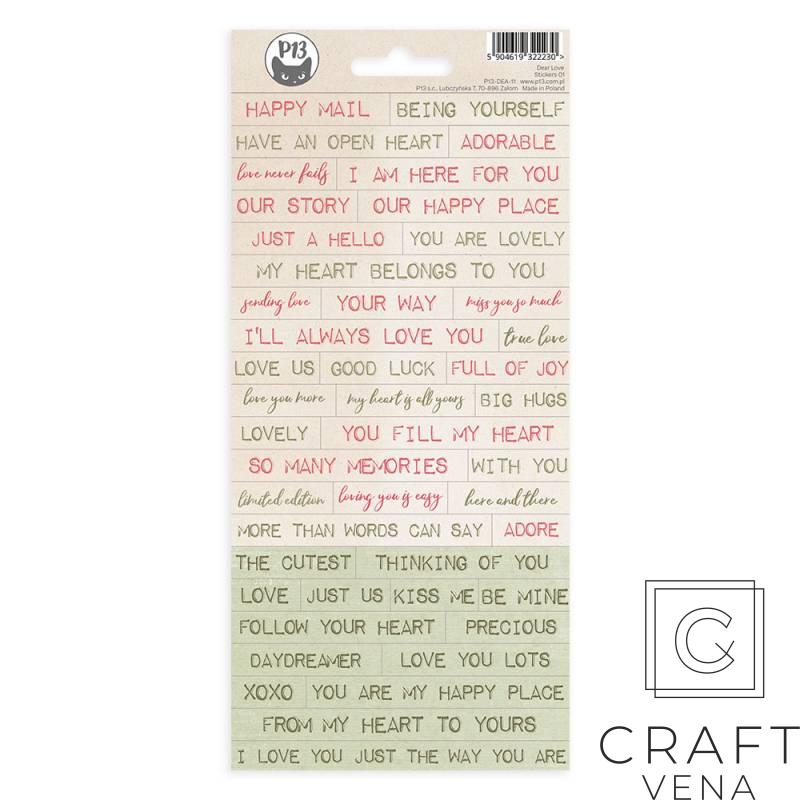 P13
5 904619 322230>
Dear Love
Stickers 01
P13-DEA-11 www.p13.com.pl
P13 s.c., Lubczyńska 7, 70-896 Załom Made in Poland
HAPPY MAIL BEING YOURSELF
HAVE AN OPEN HEART ADORABLE
love never fails I AM HERE FOR YOU
OUR STORY OUR HAPPY PLACE
JUST A HELLO YOU ARE LOVELY
MY HEART BELONGS TO YOU
sending love YOUR WAY miss you so much
I'LL ALWAYS LOVE YOU true love
LOVE US GOOD LUCK FULL OF JOY
love you more my heart is all yours BIG HUGS
LOVELY YOU FILL MY HEART
SO MANY MEMORIES WITH YOU
limited edition loving you is easy here and there
MORE THAN WORDS CAN SAY ADORE
THE CUTEST THINKING OF YOU
LOVE JUST US KISS ME BE MINE
FOLLOW YOUR HEART PRECIOUS
DAYDREAMER LOVE YOU LOTS
XOXO YOU ARE MY HAPPY PLACE
FROM MY HEART TO YOURS
I LOVE YOU JUST THE WAY YOU ARE
CRAFT
VENA